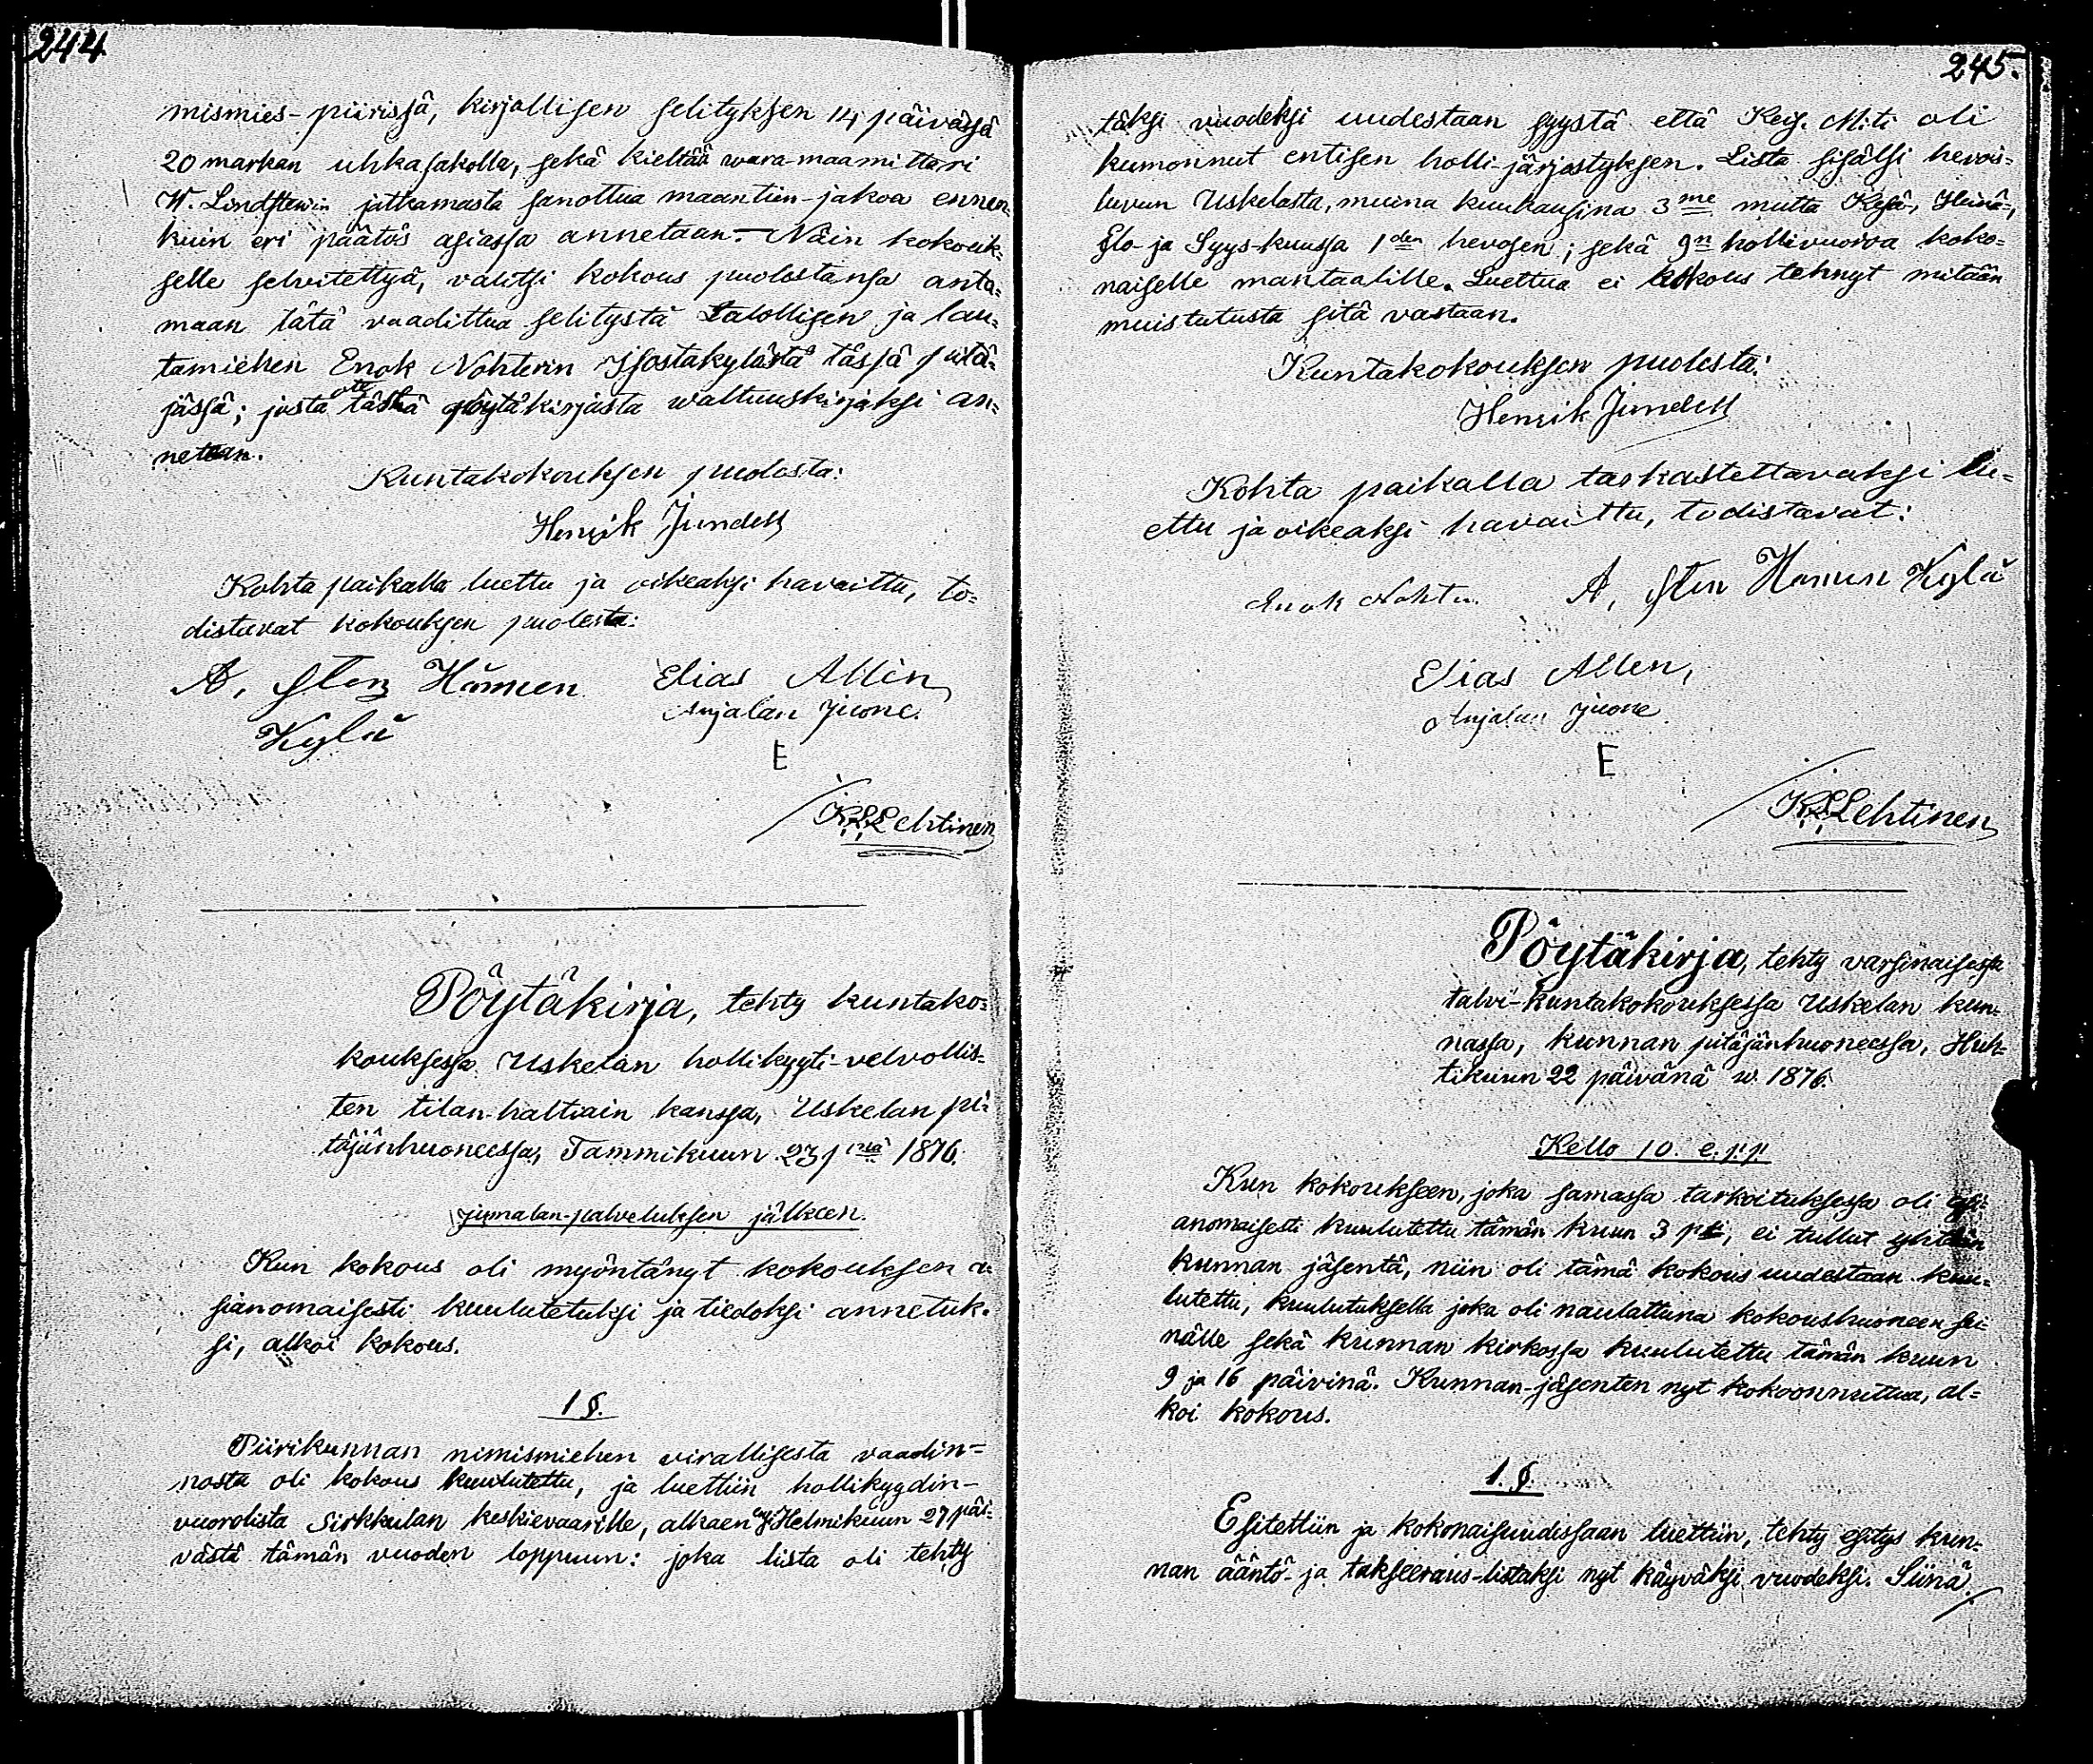 244
mismies-piirissä, kirjallisen selityksen 14 päivässä
20 markan uhkasakolla, sekä kieltää wara-maamittari
W. Lindstenin jatkamasta sanottua maantien-jakoa ennen-
kuin eri päätös asiassa annetaan. – Näin kokouk-
selle selvitettyä, valitsi kokous puolestansa anta-
maan tätä vaadittua selitystä Talollisen ja lau-
tamiehen Enok Nohterin Isostakylästä tässä pitä-
jässä; josta ote tästä pöytäkirjasta waltuuskirjaksi an-
netaan.
Kuntakokouksen puolesta:
Henrik Jundell
Kohta paikalla luettu ja oikeaksi havaittu, to-
distavat kokouksen puolesta:
A, sten Hämen
Kylä
Elias Allén
Anjalan Juone.
E
K. L. Lehtinen
Pöytäkirja, tehty kuntako-
kouksessa Uskelan hollikyyti-velvollis-
ten tilan-haltiain kanssa, Uskelan pi-
täjänhuoneessa, Tammikuun 23 pnä 1876.
jumalan-palveluksen jälkeen.
Kun kokous oli myöntänyt kokouksen a-
sianomaisesti kuulutetuksi ja tiedoksi annetuk-
si, alkoi kokous.
1 §.
Piirikunnan nimismiehen virallisesta vaadin-
nosta oli kokous kuulutettu, ja luettiin hollikyydin-
vuorolista Sirkkulan keskievaarille, alkaen Helmikuun 27 päi-
västä tämän vuoden loppuun: joka lista oli tehty
245.
täksi vuodeksi uudestaan syystä että Keis. M:ti oli
kumonnut entisen holli-järjestyksen. Lista sisälsi hevois-
luvun Uskelasta, muina kuukausina 3me mutta Kesä-, Heinä-,
Elo- ja Syys-kuussa 1den hevosen; sekä 9n hollivuoroa koko-
naiselle mantaalille. Luettua ei kokous tehnyt mitään
muistutusta sitä vastaan.
Kuntakokouksen puolesta:
Henrik Jundell
Kohta paikalla tarkastettavaksi lu-
ettu ja oikeaksi havaittu, todistavat:
Enok Nohteri. A, sten Hämen Kylä
Elias Allen,
Anjalan Juone
E
K. L. Lehtinen
Pöytäkirja, tehty varsinaisessa
talvi-kuntakokouksessa Uskelan kun-
nassa, kunnan pitäjänhuoneessa, Huh-
tikuun 22 päivänä w. 1876.
Kello 10. e. p. p.
Kun kokoukseen, joka samassa tarkoituksessa oli asi-
anomaisesti kuulutettu tämän kuun 3 p:ksi, ei tullut yhtään
kunnan jäsentä, niin oli tämä kokous uudestaan kuu-
lutettu, kuulutuksella joka oli naulattuna kokoushuoneen sei-
nälle sekä kunnan kirkossa kuulutettu tämän kuun
9 ja 16 päivinä. Kunnan-jäsenten nyt kokoonnuttua, al-
koi kokous.
1. §.
Esitettiin ja kokonaisuudissaan luettiin, tehty esitys kun-
nan ääntö- ja takseeraus-listaksi nyt käyväksi vuodeksi. Siinä